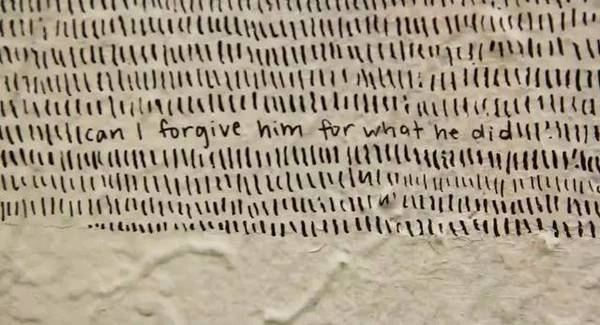 can I forgive him for what he did